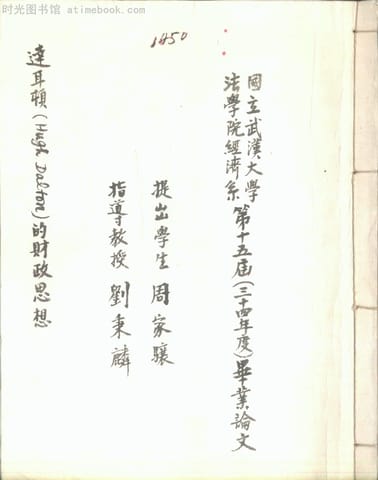 时光图书馆 atimebook.com
1450
國立武漢大學
法學院經濟系
第十五屆(三十四年度)畢業論文
提出學生 周家驤
指導教授 劉秉麟
達耳頓(Hugh Dalton)的財政思想